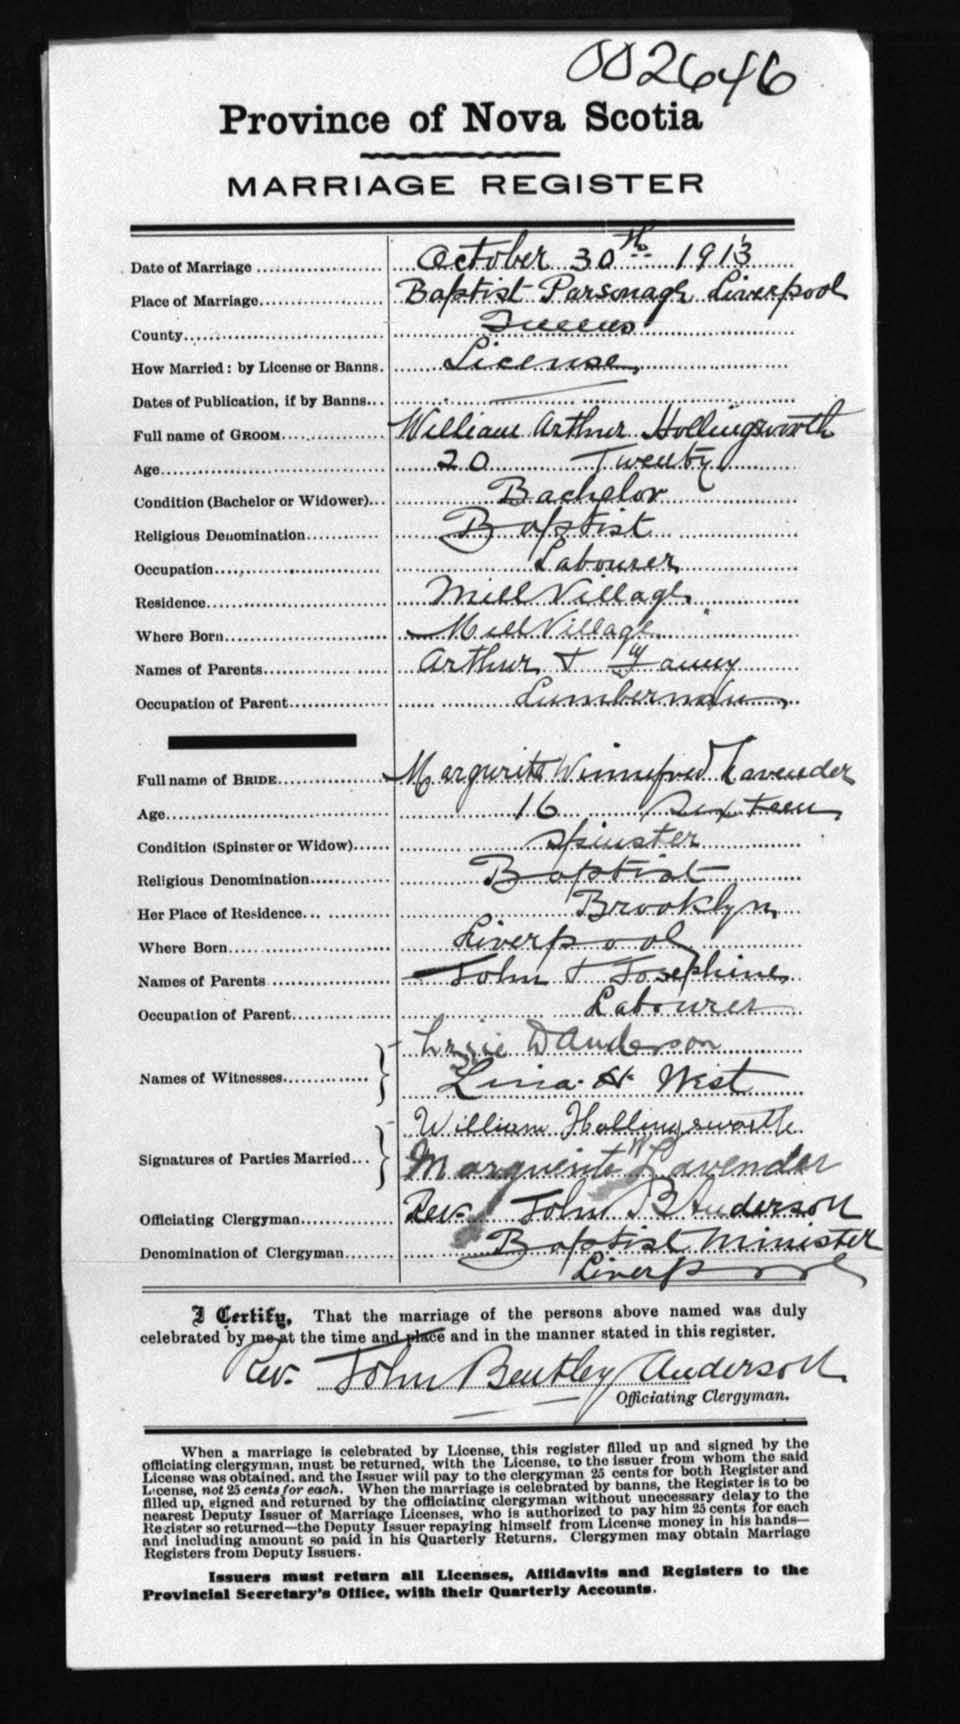 002646
Province of Nova Scotia
MARRIAGE REGISTER
Date of Marriage October 30th 1913
Place of Marriage Baptist Parsonage Liverpool
County Queens
How Married: by License or Banns. License
Dates of Publication, if by Banns
Full name of GROOM William Arthur Hollingsworth
Age 20 Twenty
Condition (Bachelor or Widower) Bachelor
Religious Denomination Baptist
Occupation Labourer
Residence Mill Village
Where Born Mill Village
Names of Parents Arthur & Fanny
Occupation of Parent Lumberman
Full name of BRIDE Margurite Winnifred Lavender
Age 16 Sixteen
Condition (Spinster or Widow) Spinster
Religious Denomination Baptist
Her Place of Residence Brooklyn
Where Born Liverpool
Names of Parents John & Josephine
Occupation of Parent Labourer
Lizzie D Anderson
Names of Witnesses
Lina H West
William Hollingsworth
Signatures of Parties Married
Marguerite W Lavender
Officiating Clergyman Rev. John B Anderson
Denomination of Clergyman Baptist Minister
Liverpool
I Certify, That the marriage of the persons above named was duly
celebrated by me at the time and place and in the manner stated in this register.
Rev. John Bentley Anderson
Officiating Clergyman.
When a marriage is celebrated by License, this register filled up and signed by the
officiating clergyman, must be returned, with the License, to the issuer from whom the said
License was obtained, and the Issuer will pay to the clergyman 25 cents for both Register and
License, not 25 cents for each. When the marriage is celebrated by banns, the Register is to be
filled up, signed and returned by the officiating clergyman without unnecessary delay to the
nearest Deputy Issuer of Marriage Licenses, who is authorized to pay him 25 cents for each
Register so returned—the Deputy Issuer repaying himself from License money in his hands—
and including amount so paid in his Quarterly Returns. Clergymen may obtain Marriage
Registers from Deputy Issuers.
Issuers must return all Licenses, Affidavits and Registers to the
Provincial Secretary's Office, with their Quarterly Accounts.